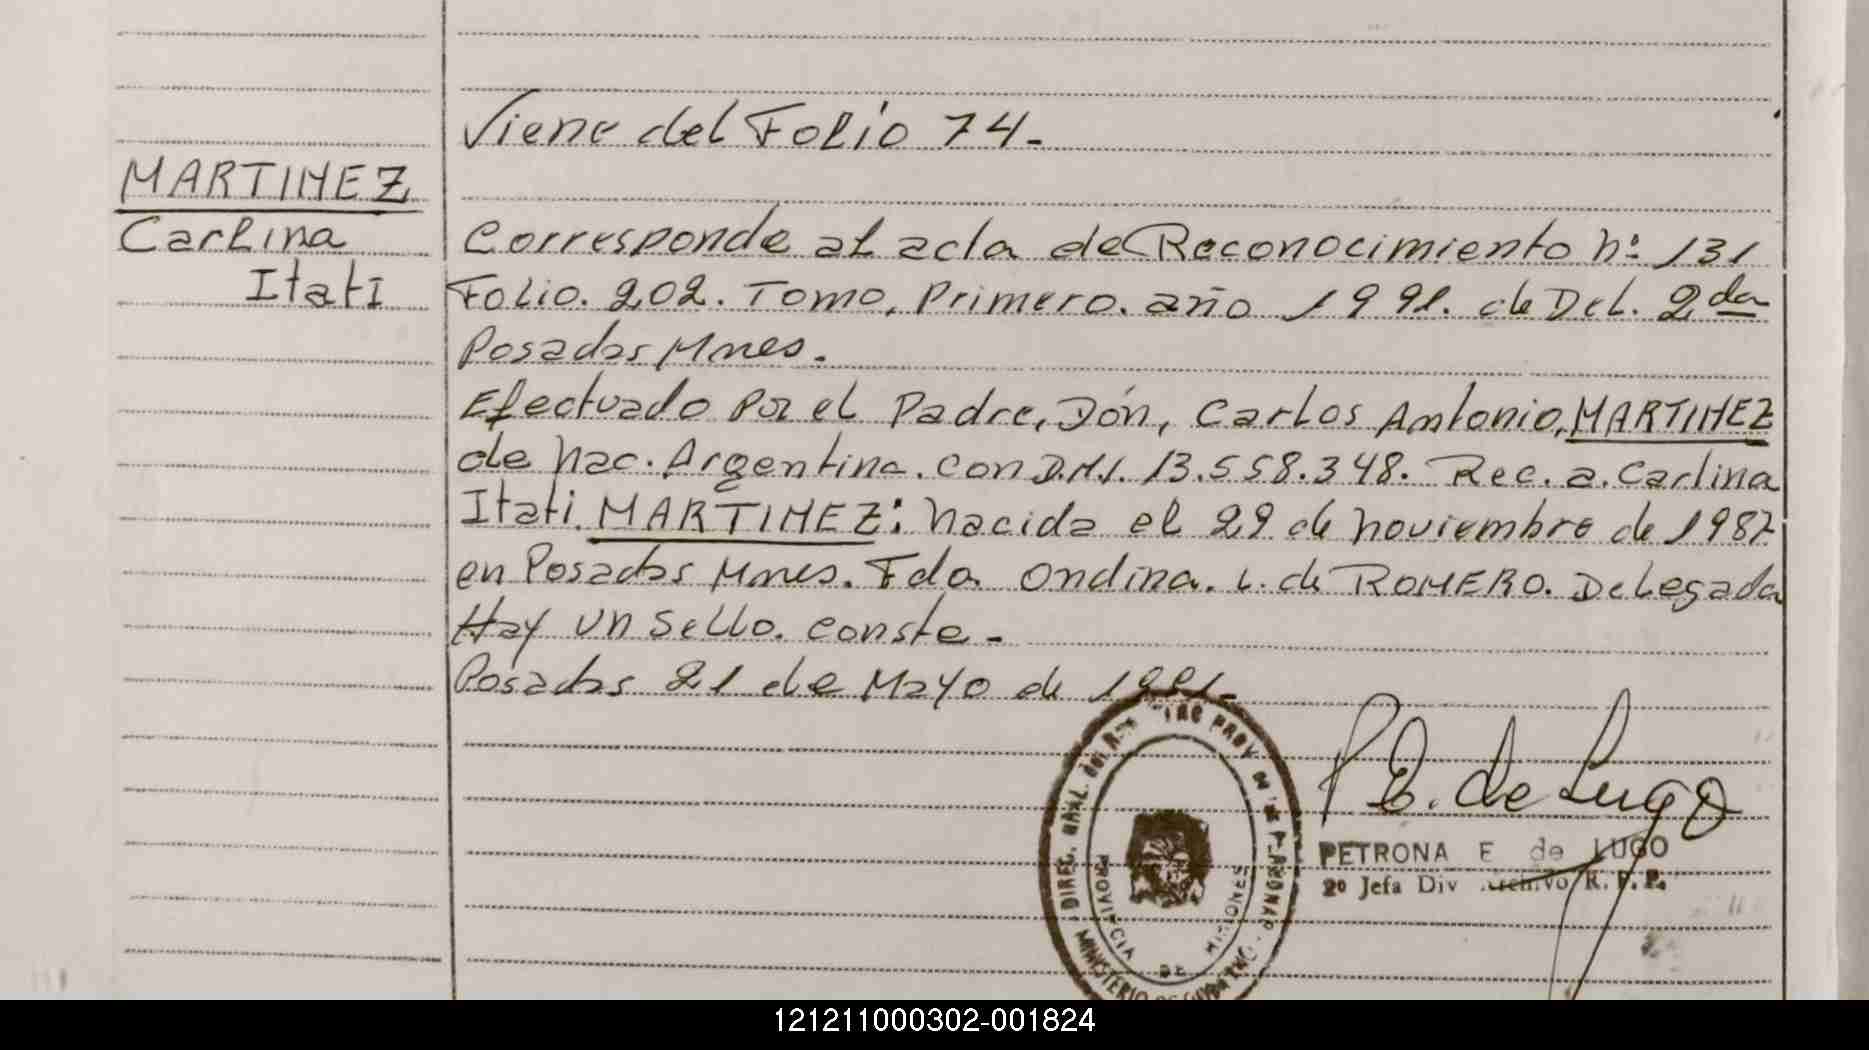 Viene del Folio 74.-
MARTINEZ
Carlina
Itati
Corresponde al acta de Reconocimiento Nº 131
Folio. 202. Tomo, Primero. año 1991. de Del. 2da
Posadas Mnes.
Efectuado Por el Padre, Dón, Carlos Antonio, MARTINEZ
de Nac. Argentina. con D.N.I. 13.558.348. Rec. a. Carlina
Itati. MARTINEZ: Nacida el 29 de Noviembre de 1987
en Posadas Mnes. Fdo. Ondina. L. de ROMERO. Delegada
Hay un Sello. Conste-
Posadas 21 de Mayo de 1991.-
P.E. de Lugo
PETRONA E de LUGO
2º Jefa Div Archivo R. P. P.
PROVINCIA DE MISIONES
121211000302-001824